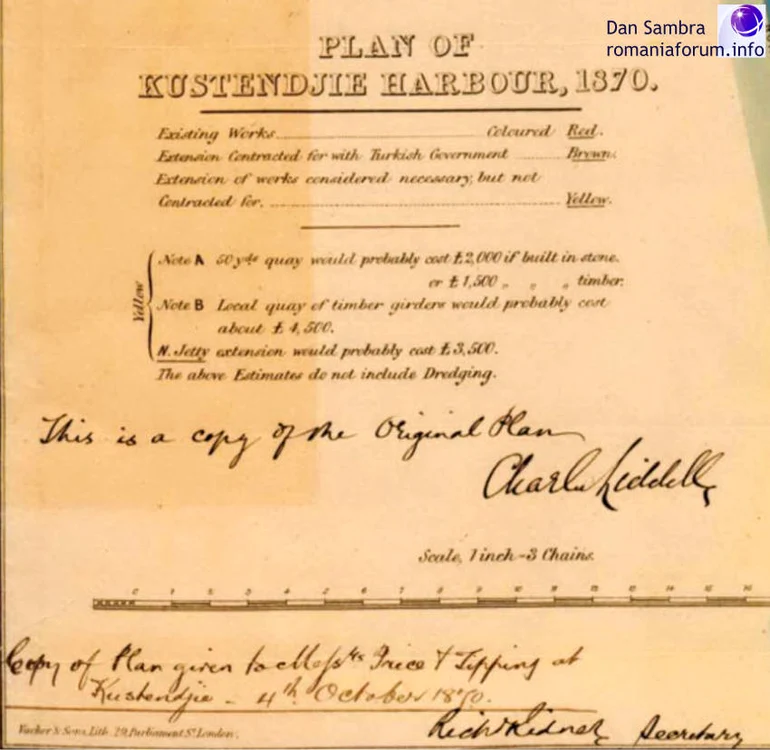 Dan Sambra
romaniaforum.info
PLAN OF
KUSTENDJIE HARBOUR, 1870.
Existing Works Coloured Red.
Extension Contracted for with Turkish Government Brown.
Extension of works considered necessary, but not
Contracted for. Yellow.
Yellow
Note A 50 yds quay would probably cost £2,000 if built in stone.
or £1,500 „ „ „ timber.
Note B Local quay of timber girders would probably cost
about £4,500.
N. Jetty extension would probably cost £3,500.
The above Estimates do not include Dredging.
This is a copy of the Original Plan
Charles Liddell
Scale, 1 inch = 3 Chains.
Copy of Plan given to Messrs Price & Tipping at
Kustendjie - 4th October 1870.
Richd Secretary
Vacher & Sons, Lith. 29, Parliament St London.